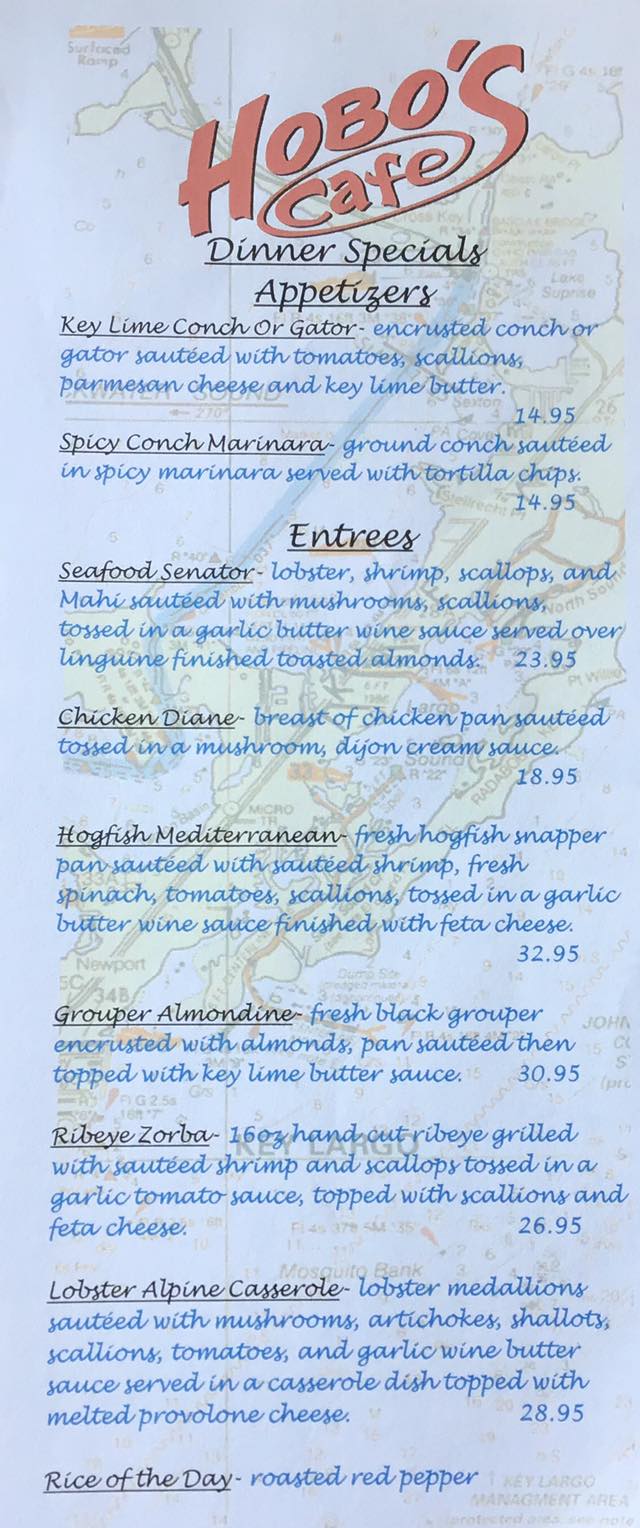 Surfaced
Ramp
HOBO'S
Cafe
Dinner Specials
Appetizers
Key Lime Conch Or Gator- encrusted conch or
gator sautéed with tomatoes, scallions,
parmesan cheese and key lime butter.
14.95
Spicy Conch Marinara- ground conch sautéed
in spicy marinara served with tortilla chips.
14.95
Entrees
Seafood Senator- lobster, shrimp, scallops, and
Mahi sautéed with mushrooms, scallions,
tossed in a garlic butter wine sauce served over
linguine finished toasted almonds. 23.95
Chicken Diane- breast of chicken pan sautéed
tossed in a mushroom, dijon cream sauce.
18.95
Hogfish Mediterranean- fresh hogfish snapper
pan sautéed with sautéed shrimp, fresh
spinach, tomatoes, scallions, tossed in a garlic
butter wine sauce finished with feta cheese.
32.95
Newport
Grouper Almondine- fresh black grouper
encrusted with almonds, pan sautéed then
topped with key lime butter sauce. 30.95
Ribeye Zorba- 16oz hand cut ribeye grilled
KEY LARGO
with sautéed shrimp and scallops tossed in a
garlic tomato sauce, topped with scallions and
feta cheese. 26.95
Mosquito Bank
Lobster Alpine Casserole- lobster medallions
sautéed with mushrooms, artichokes, shallots,
scallions, tomatoes, and garlic wine butter
sauce served in a casserole dish topped with
melted provolone cheese. 28.95
Rice of the Day- roasted red pepper
KEY LARGO
MANAGMENT AREA